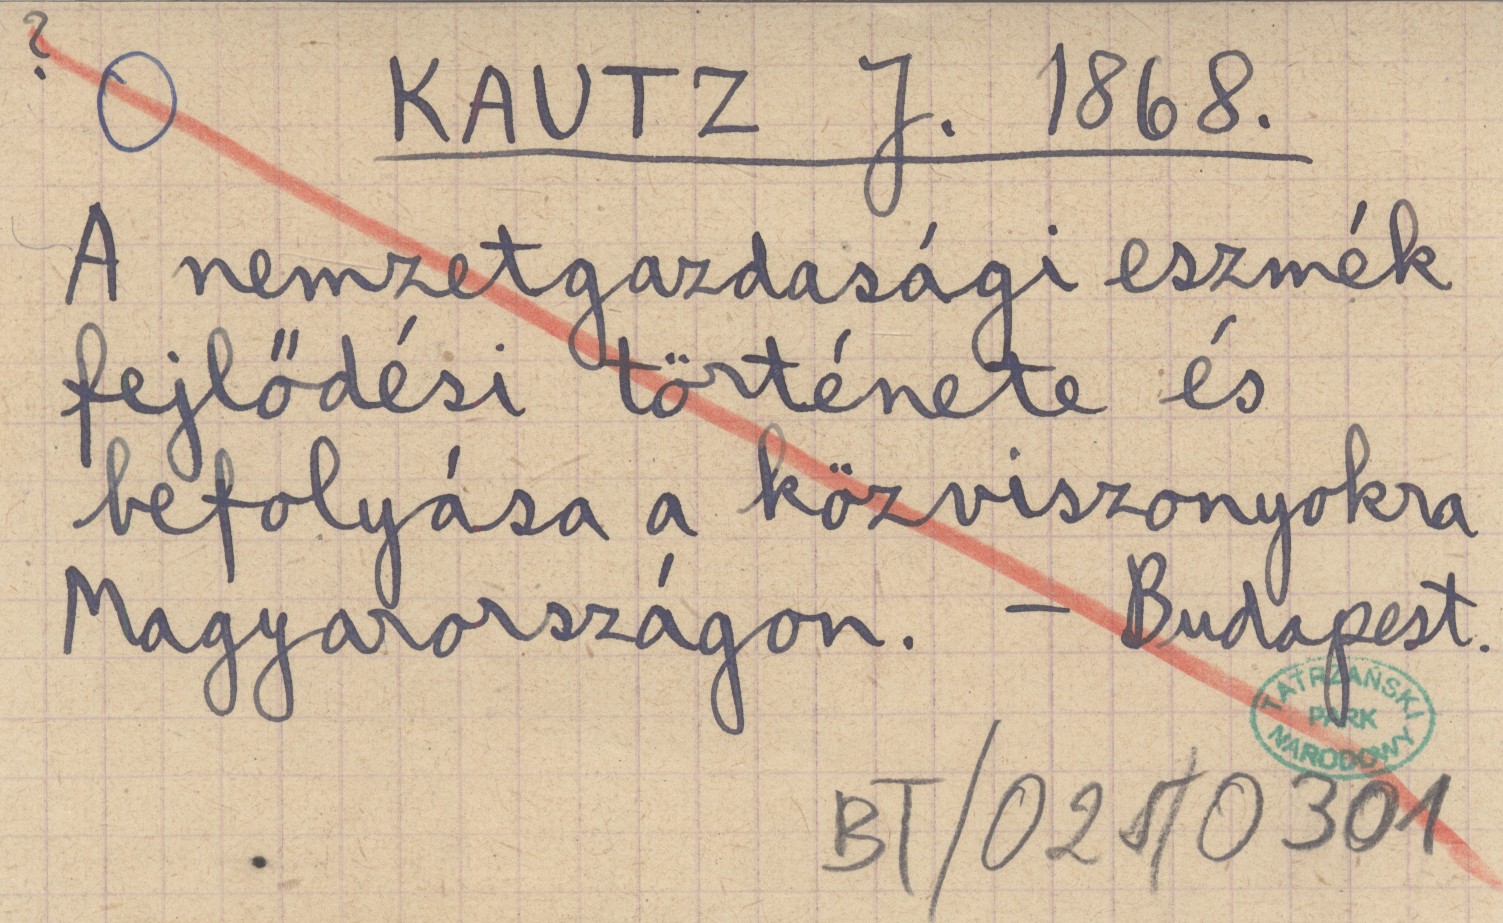 ?
KAUTZ J. 1868.
A nemzetgazdasági eszmék
fejlődési története és
befolyása a közviszonyokra
Magyarországon. – Budapest.
TATRZAŃSKI
PARK
NARODOWY
BT/02 0301